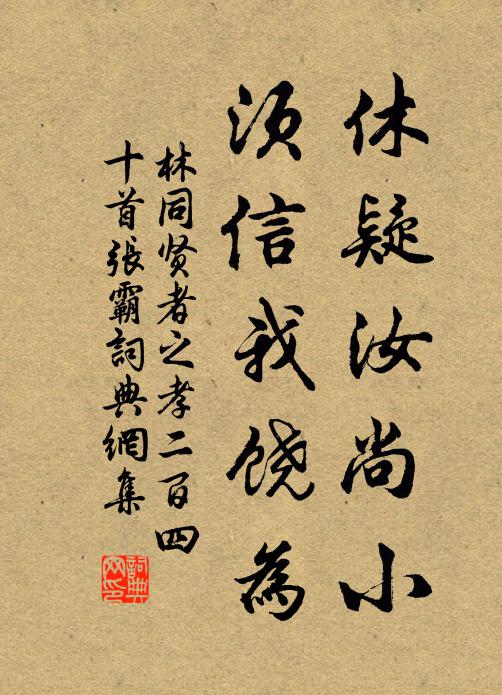 休疑汝尚小
须信我饶為
林同贤者之孝二百四
十首張霸詞典網集
詞典
网印